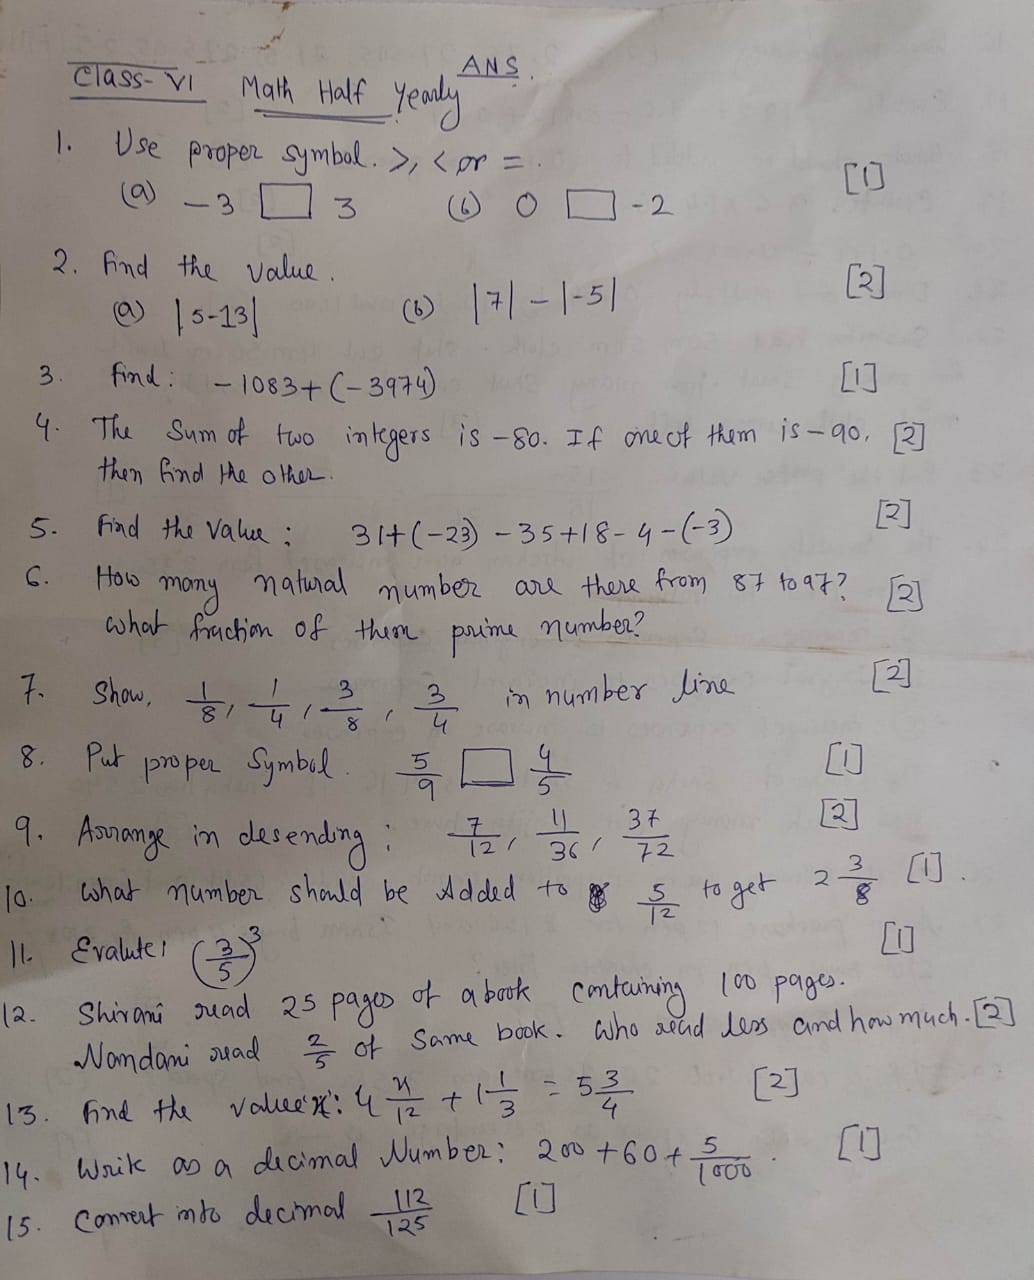 Class- VI Math Half Yearly ANS.
1. Use proper symbol. >, < or = .
(a) -3 □ 3 (b) 0 □ -2 [1]
2. Find the value. [2]
(a) |5-13| (b) |7| - |-5|
3. Find: -1083+(-3974) [1]
4. The Sum of two integers is -80. If one of them is -90, [2]
then find the other.
5. Find the Value: 31+(-23) -35+18-4-(-3) [2]
6. How many natural number are there from 87 to 97? [2]
What fraction of them prime number?
7. Show, 1/8, 1/4, 3/8, 3/4 in number line [2]
8. Put proper Symbol. 5/9 □ 4/5 [1]
9. Arrange in desending: 7/12, 11/36, 37/72 [2]
10. What number should be Added to 5/12 to get 2 3/8 [1].
11. Evalute: (3/5)³ [1]
12. Shivani read 25 pages of a book containing 100 pages.
Nandani read 2/5 of Same book. Who read less and how much. [2]
13. Find the value 'x': 4 x/12 + 1 1/3 = 5 3/4 [2]
14. Write as a decimal Number: 200+60+ 5/1000. [1]
15. Convert into decimal 112/125 [1]